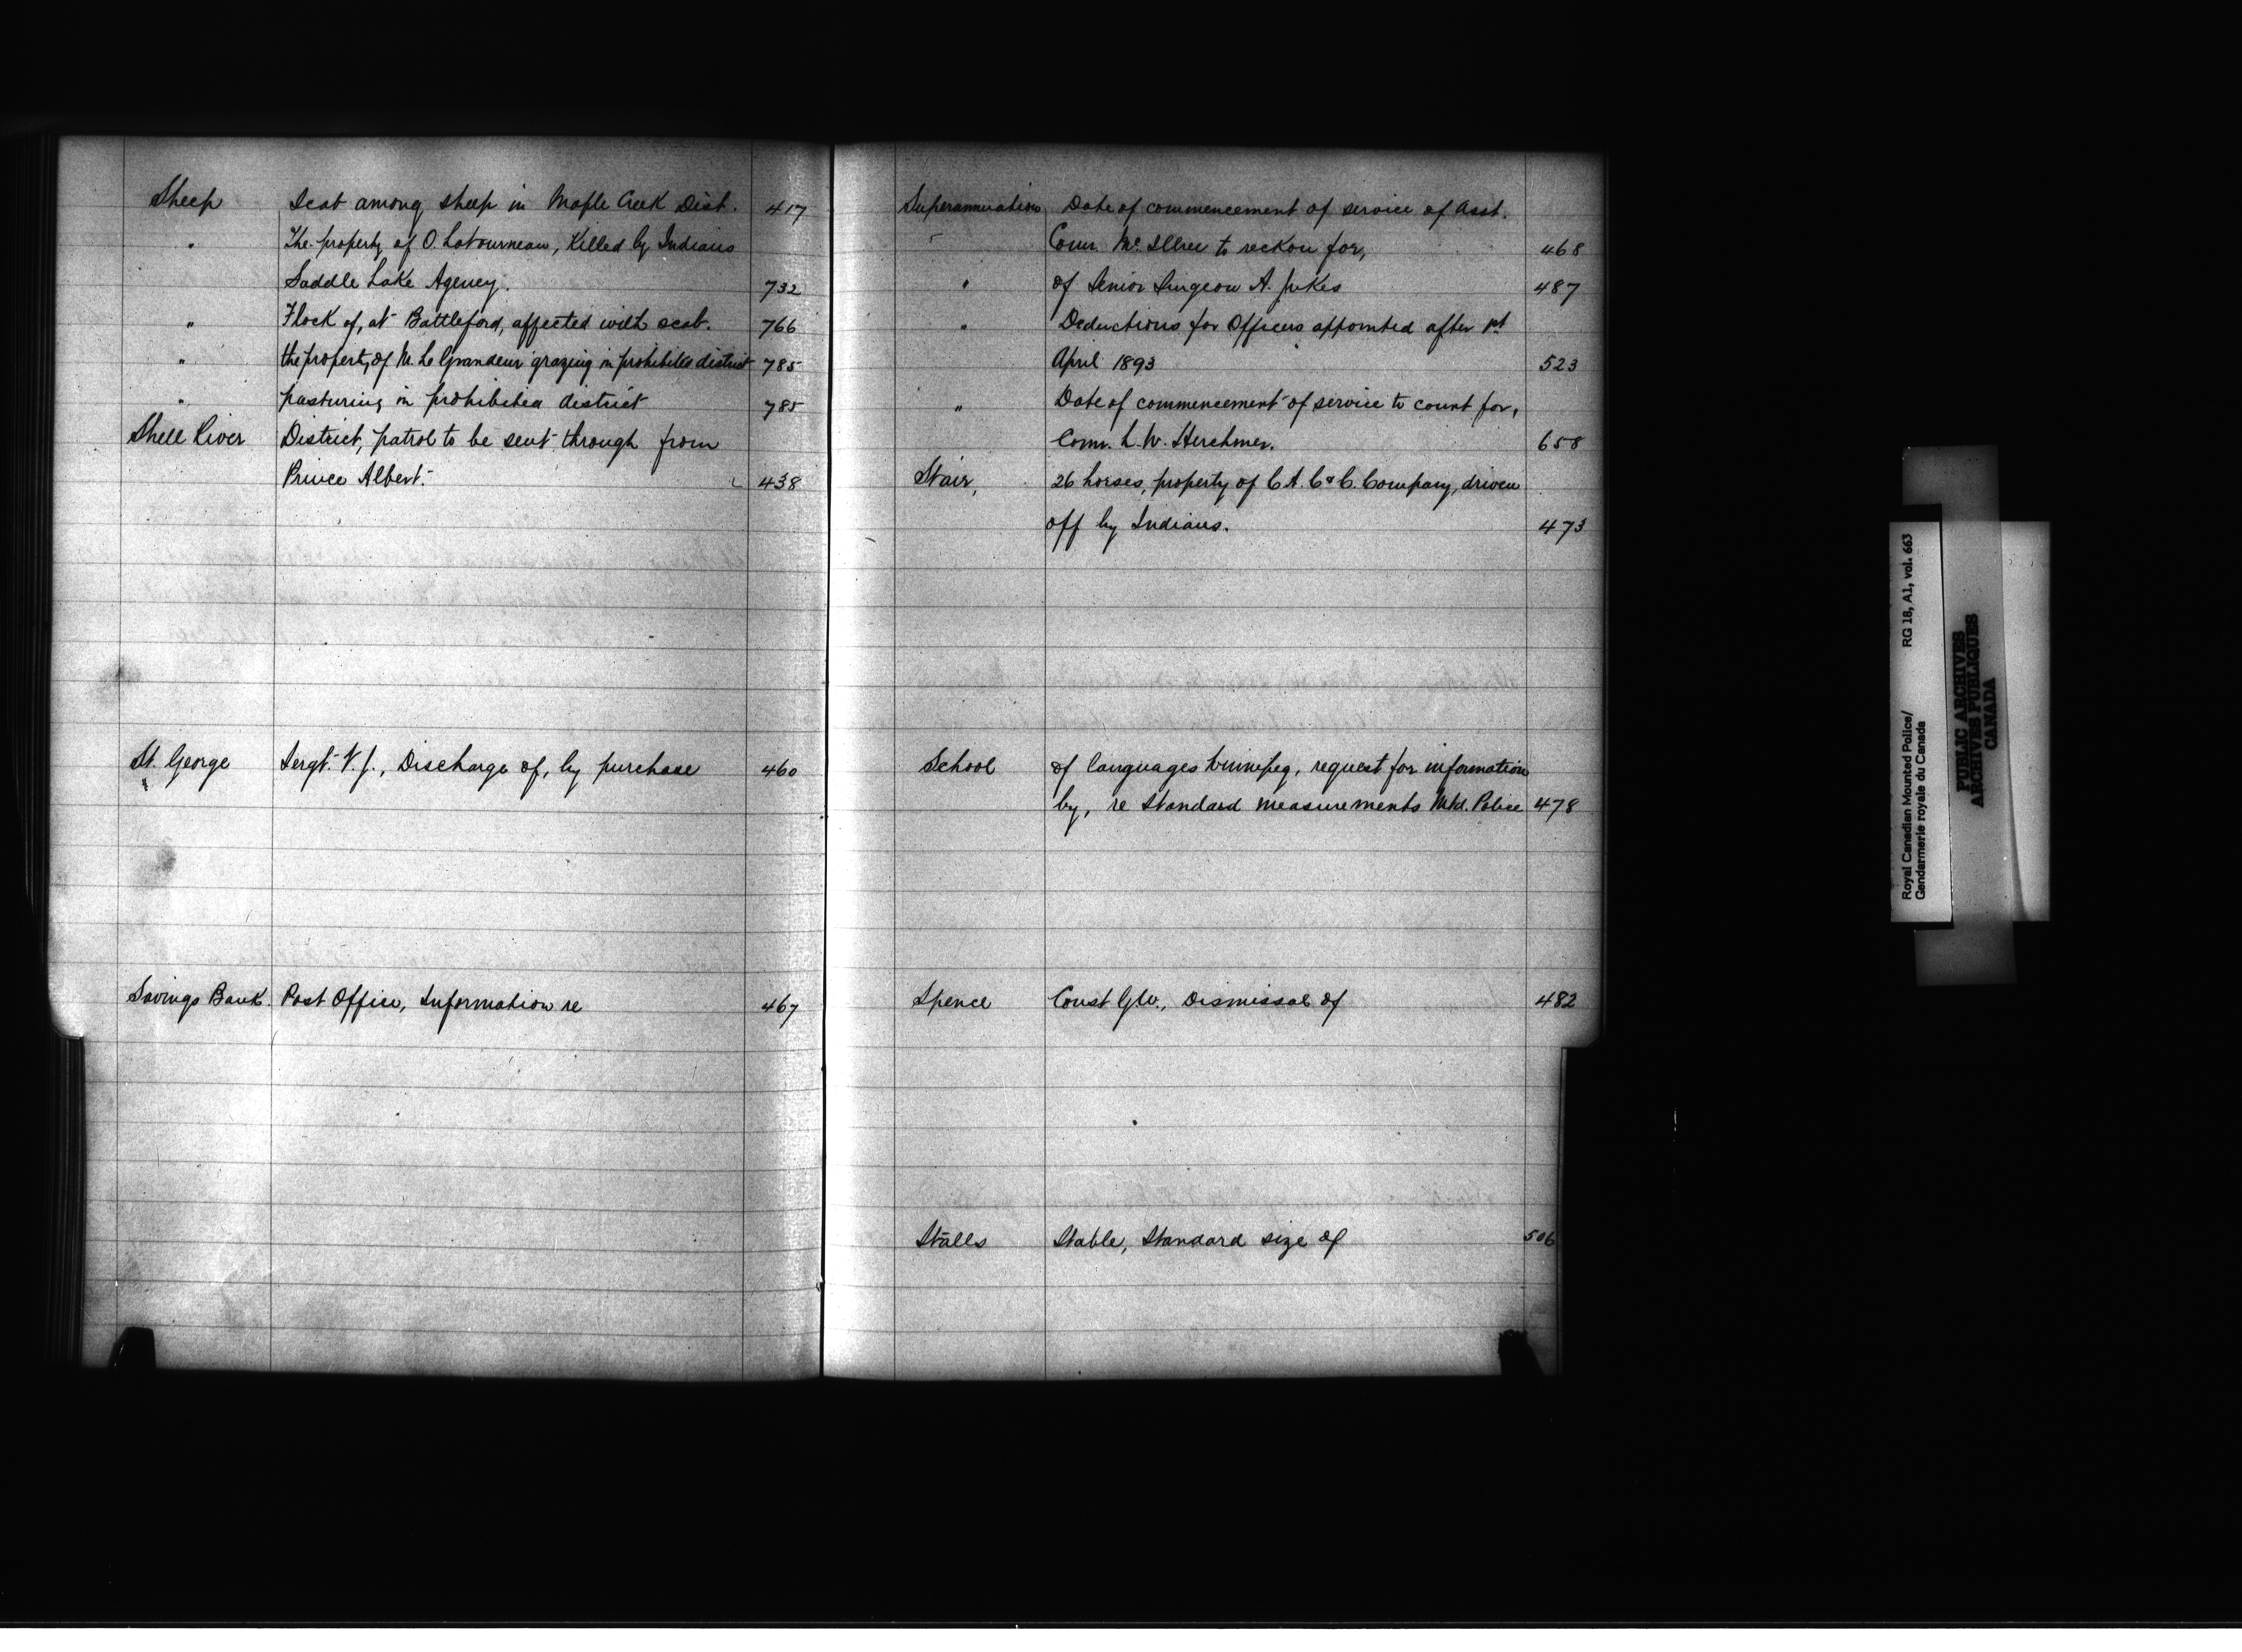 Sheep Scab among sheep in Maple Creek Dist. 417
" The property of O. Latourneau, Killed by Indians
Saddle Lake Agency. 732
" Flock of, at Battleford, affected with scab. 766
" the property of M. Le Grandeur grazing in prohibited district 785
" pasturing in prohibited district 785
Shell River District, patrol to be sent through from
Prince Albert. 438
St. George Sergt. V. J., Discharge of, by purchase 460
Savings Bank. Post Office, Information re 467
Superannuation Date of commencement of service of Asst.
Comr. Mc. Illree to reckon for, 468
" of Senior Surgeon A. Jukes 487
" Deductions for Officers appointed after 1st
April 1893 523
" Date of commencement of service to count for,
Comr. L. W. Herchmer. 658
Stair, 26 horses, property of C. A. C & C. Company, driven
off by Indians. 473
School of languages Winnipeg, request for information
by, re Standard measurements Mtd. Police 478
Spence Const G.W., Dismissal of 482
Stalls Stable, Standard size of 506
Royal Canadian Mounted Police/ RG 18, A1, vol. 663
Gendarmerie royale du Canada
PUBLIC ARCHIVES
ARCHIVES PUBLIQUES
CANADA